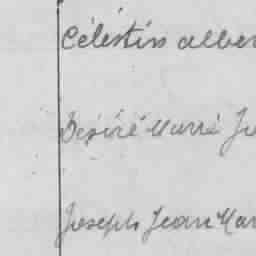 Célestin alber
Désiré Marié Ju
Joseph Jean Mar